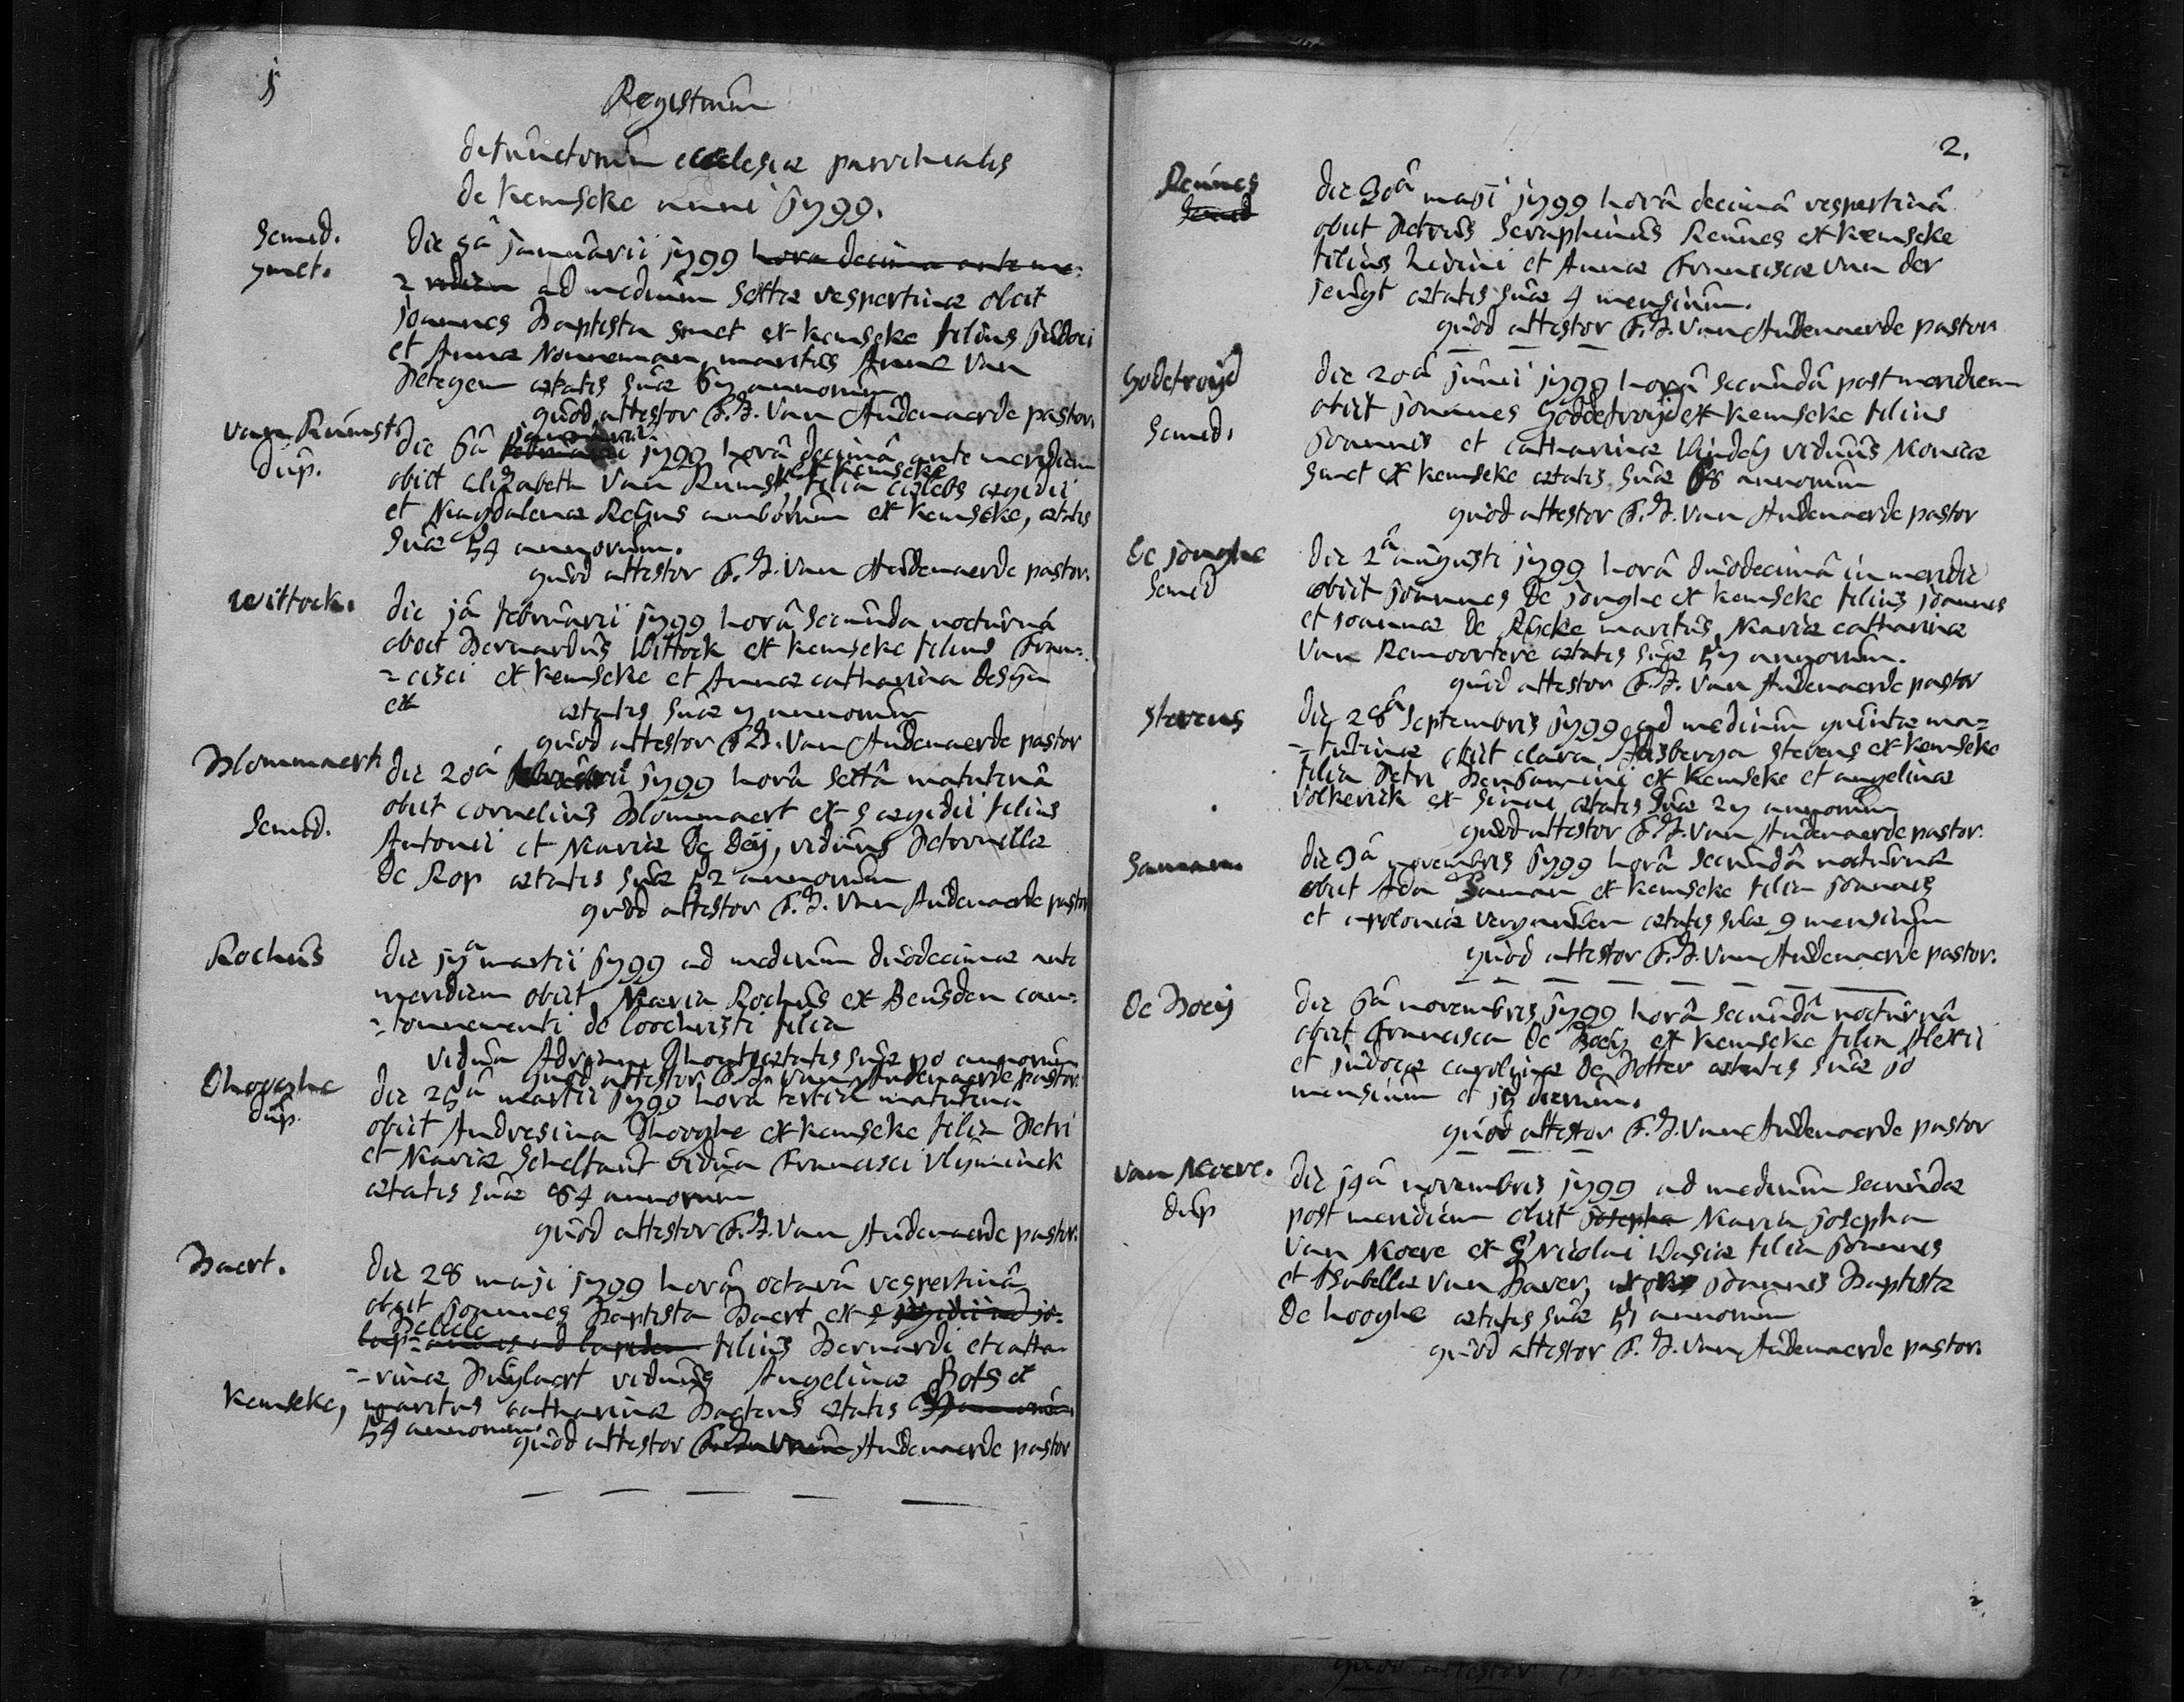 1
Registrum
defunctorum ecclesiæ parochialis
de Kemseke anni 1799.
Semid.
Smet.
Die 5â januârii 1799 hora decima ante me-
= ridiem ad medium sextæ vespertinæ obiit
joannes Baptista Smet ex Kemseke filius judoci
et Annæ Nonneman, maritus Annæ Van
Petegem ætatis suæ 67 annorum
quod attestor F.J. Van Audenaerde pastor.
Van Rumst.
dup.
Die 6â februarii januarii 1799 horâ decimâ ante meridiem
obiit Elizabeth Van Rumst ex Kemseke filia cælebs ægidii
et Magdalenæ Reÿns amborum ex Kemseke, ætatis
suæ 54 annorum.
quod attestor F.J. Van Audenaerde pastor.
Wittock.
Die 1â februârii 1799 horâ secunda nocturnâ
obiit Bernardus Wittock ex Kemseke filius Fran=
= cisci ex Kemseke et Annæ catharina
ex ætatis suæ 7 annorum
quod attestor F.J. Van Audenaerde pastor
Blommaert
Semid.
Die 20â februârii 1799 horâ sextâ matutinâ
obiit cornelius Blommaert ex S ægidii filius
Antonii et Mariæ De Deij, viduus Petronillæ
De Rop ætatis suæ 52 annorum
quod attestor F.J. Van Audenaerde pastor
Rochus
Die 17â martii 1799 ad medium duodecimæ ante
meridiem obiit Maria Rochus ex Beusden can=
= tonnementi de loochristi filia
vidua Adriani Dhont ætatis suæ 70 annorum
quod attestor F.J. Van Audenaerde pastor.
Dhooghe
dup.
Die 25â martii 1799 hora tertiâ matutinâ
obiit Andresina Dhooghe ex Kemseke filia Petri
et Mariæ Scheltaut vidua Francisci Vlyminck
ætatis suæ 84 annorum
quod attestor F.J. Van Audenaerde pastor.
Baert.
Die 28 maji 1799 horâ octavâ vespertinâ
obiit joannes Baptista Baert ex S
Belcele filius Bernardi et catha-
= rinæ Puÿlaert viduus Angelinæ Bots ex
Kemseke, maritus catharinæ Baetens ætatis
54 annorum
quod attestor Audenaerde pastor
2.
Reunes
Semid
Die 30â maji 1799 horâ decimâ vespertinâ
obiit Petrus Seraphinus Reunes ex Kemseke
filius Livini et Annæ Franciscæ Van der
jeugt ætatis suæ 4 mensium.
quod attestor F.J. Van Audenaerde pastor
Godefroijd
Semid.
Die 20â junii 1799 horâ secundâ post meridiem
obiit joannes Goddefroijd ex Kemseke filius
joannis et catharinæ Windeÿ viduus Monicæ
Smet ex Kemseke ætatis suæ 68 annorum
quod attestor F.J. Van Audenaerde pastor
De jonghe
Semid
Die 2â augusti 1799 horâ duodecimâ in meridie
obiit joannes De jonghe ex Kemseke filius joannes
et joannæ De Rycke maritus Mariæ catharinæ
Van Remoortere ætatis suæ 57 annorum.
quod attestor F.J. Van Audenaerde pastor
Stevens
Die 28â septembris 1799 ad medium quintæ ma=
= tutinæ obiit clara Alsberga Stevens ex Kemseke
filia Petri Benjamini ex Kemseke et angelinæ
Volkerick ex Sinai ætatis suæ 27 annorum
quod attestor F.J. Van Audenaerde pastor.
Saman
Die 3â novembris 1799 horâ secundâ nocturnæ
obiit Ada Saman ex Kemseke filia joannis
et apoloniæ Vergauwen ætatis suæ 9 mensium
quod attestor F.J. Van Audenaerde pastor.
De Boeij
Die 6â novembris 1799 horâ secundâ nocturnâ
obiit Francisca De Boeij ex Kemseke filia Alexii
et judocæ carolinæ De Potter ætatis suæ 10
mensium et 15 dierum.
quod attestor F.J. Van Audenaerde pastor
Van Moere.
dup
Die 19â novembris 1799 ad medium secundæ
post meridiem obiit josepha Maria josepha
Van Moere ex S' Nicolai Wasiæ filia joannis
et Isabellæ Van Haver, uxor joannes Baptista
De hooghe ætatis suæ 51 annorum
quod attestor F.J. Van Audenaerde pastor.
2